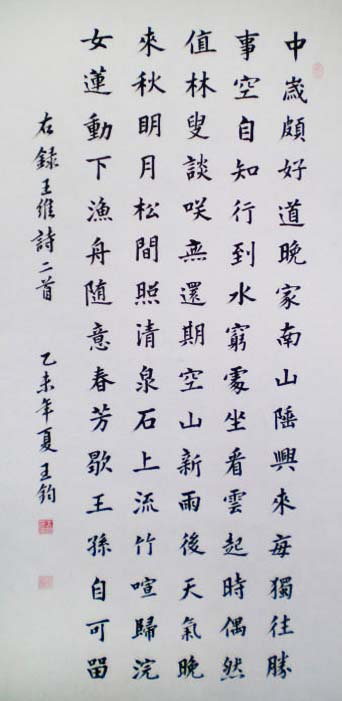 中歲頗好道晚家南山陲興來每獨往勝
事空自知行到水窮處坐看雲起時偶然
值林叟談咲無還期空山新雨後天氣晚
來秋明月松間照清泉石上流竹喧歸浣
女蓮動下漁舟隨意春芳歇王孫自可留
右錄王維詩二首 乙未年夏王鈞